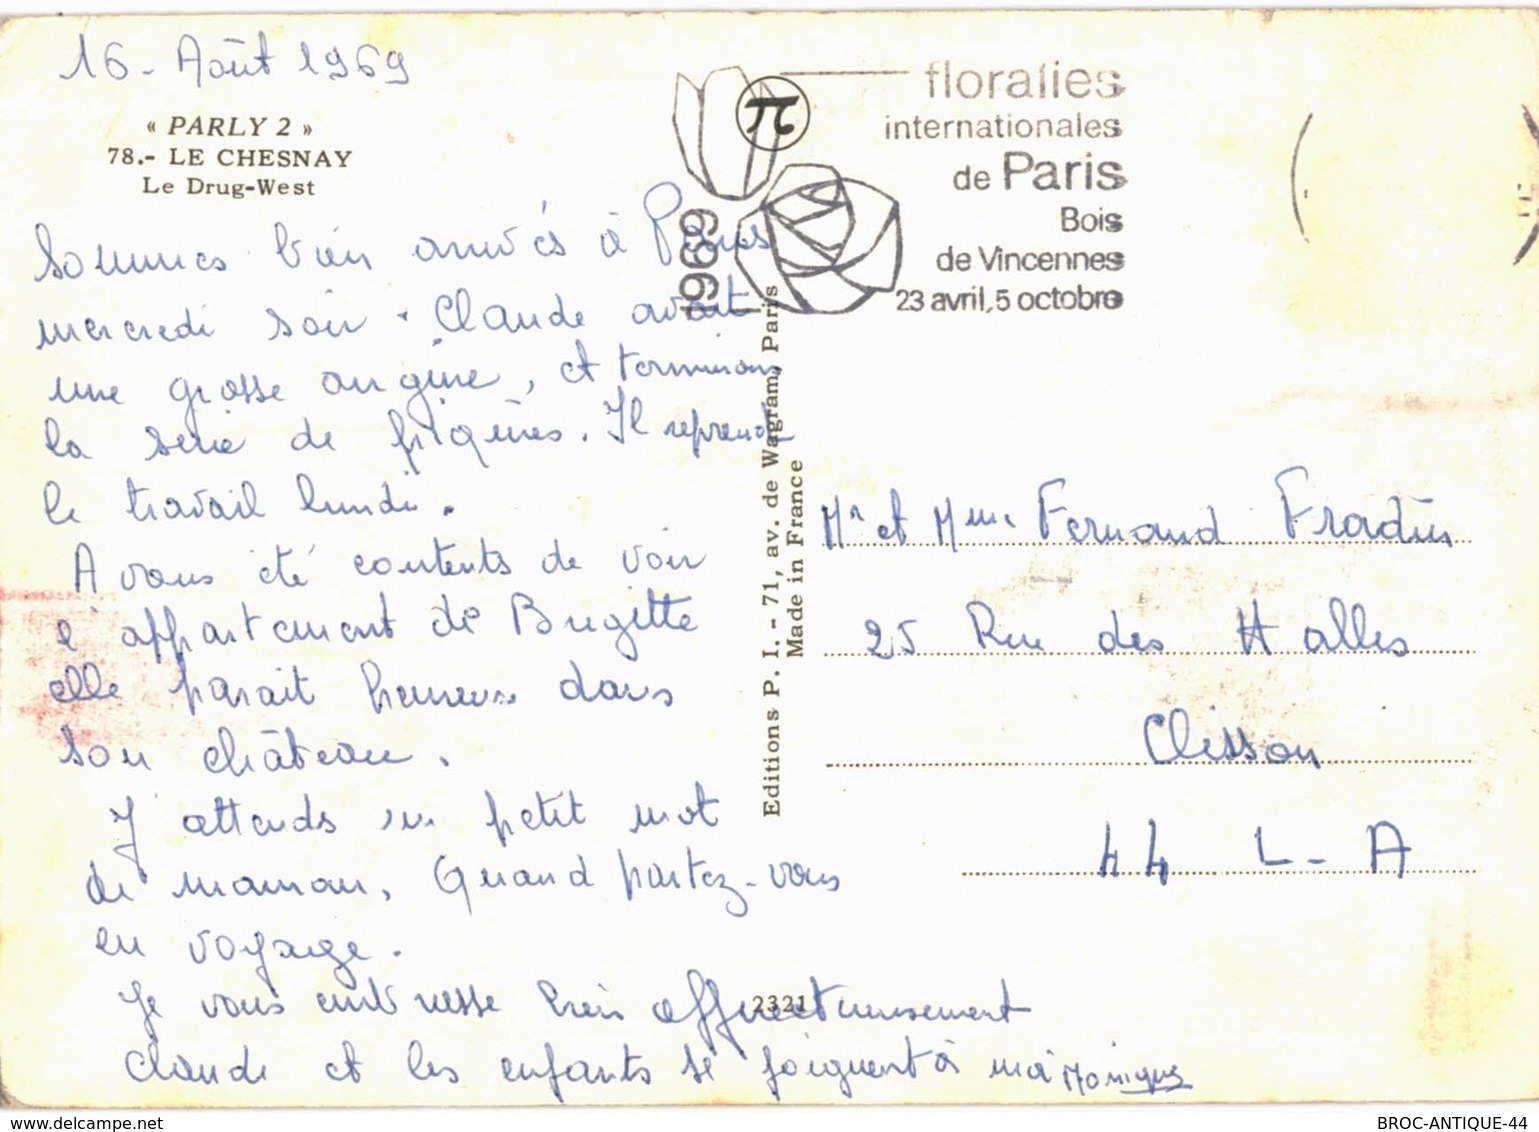 16 - Août 1969
« PARLY 2 »
78.- LE CHESNAY
Le Drug-West
Sommes bien arrivés à Paris
mercredi soir. Claude avait
une grosse angine, et terminons
la série de piqûres. Il reprend
le travail lundi.
Avons été contents de voir
l'appartement de Brigitte
elle parait heureuse dans
son château.
J'attends un petit mot
de maman, Quand partez-vous
en voyage.
Je vous embrasse bien affectueusement
Claude et les enfants se joignent à moi Monique
floralies
internationales
de Paris
Bois
de Vincennes
23 avril, 5 octobre
1969
Editions P. I. - 71, av. de Wagram, Paris
Made in France
2321
Mr et Mme Fernand Fradin
25 Rue des Halles
Clisson
44 L-A
www.delcampe.net
BROC-ANTIQUE-44